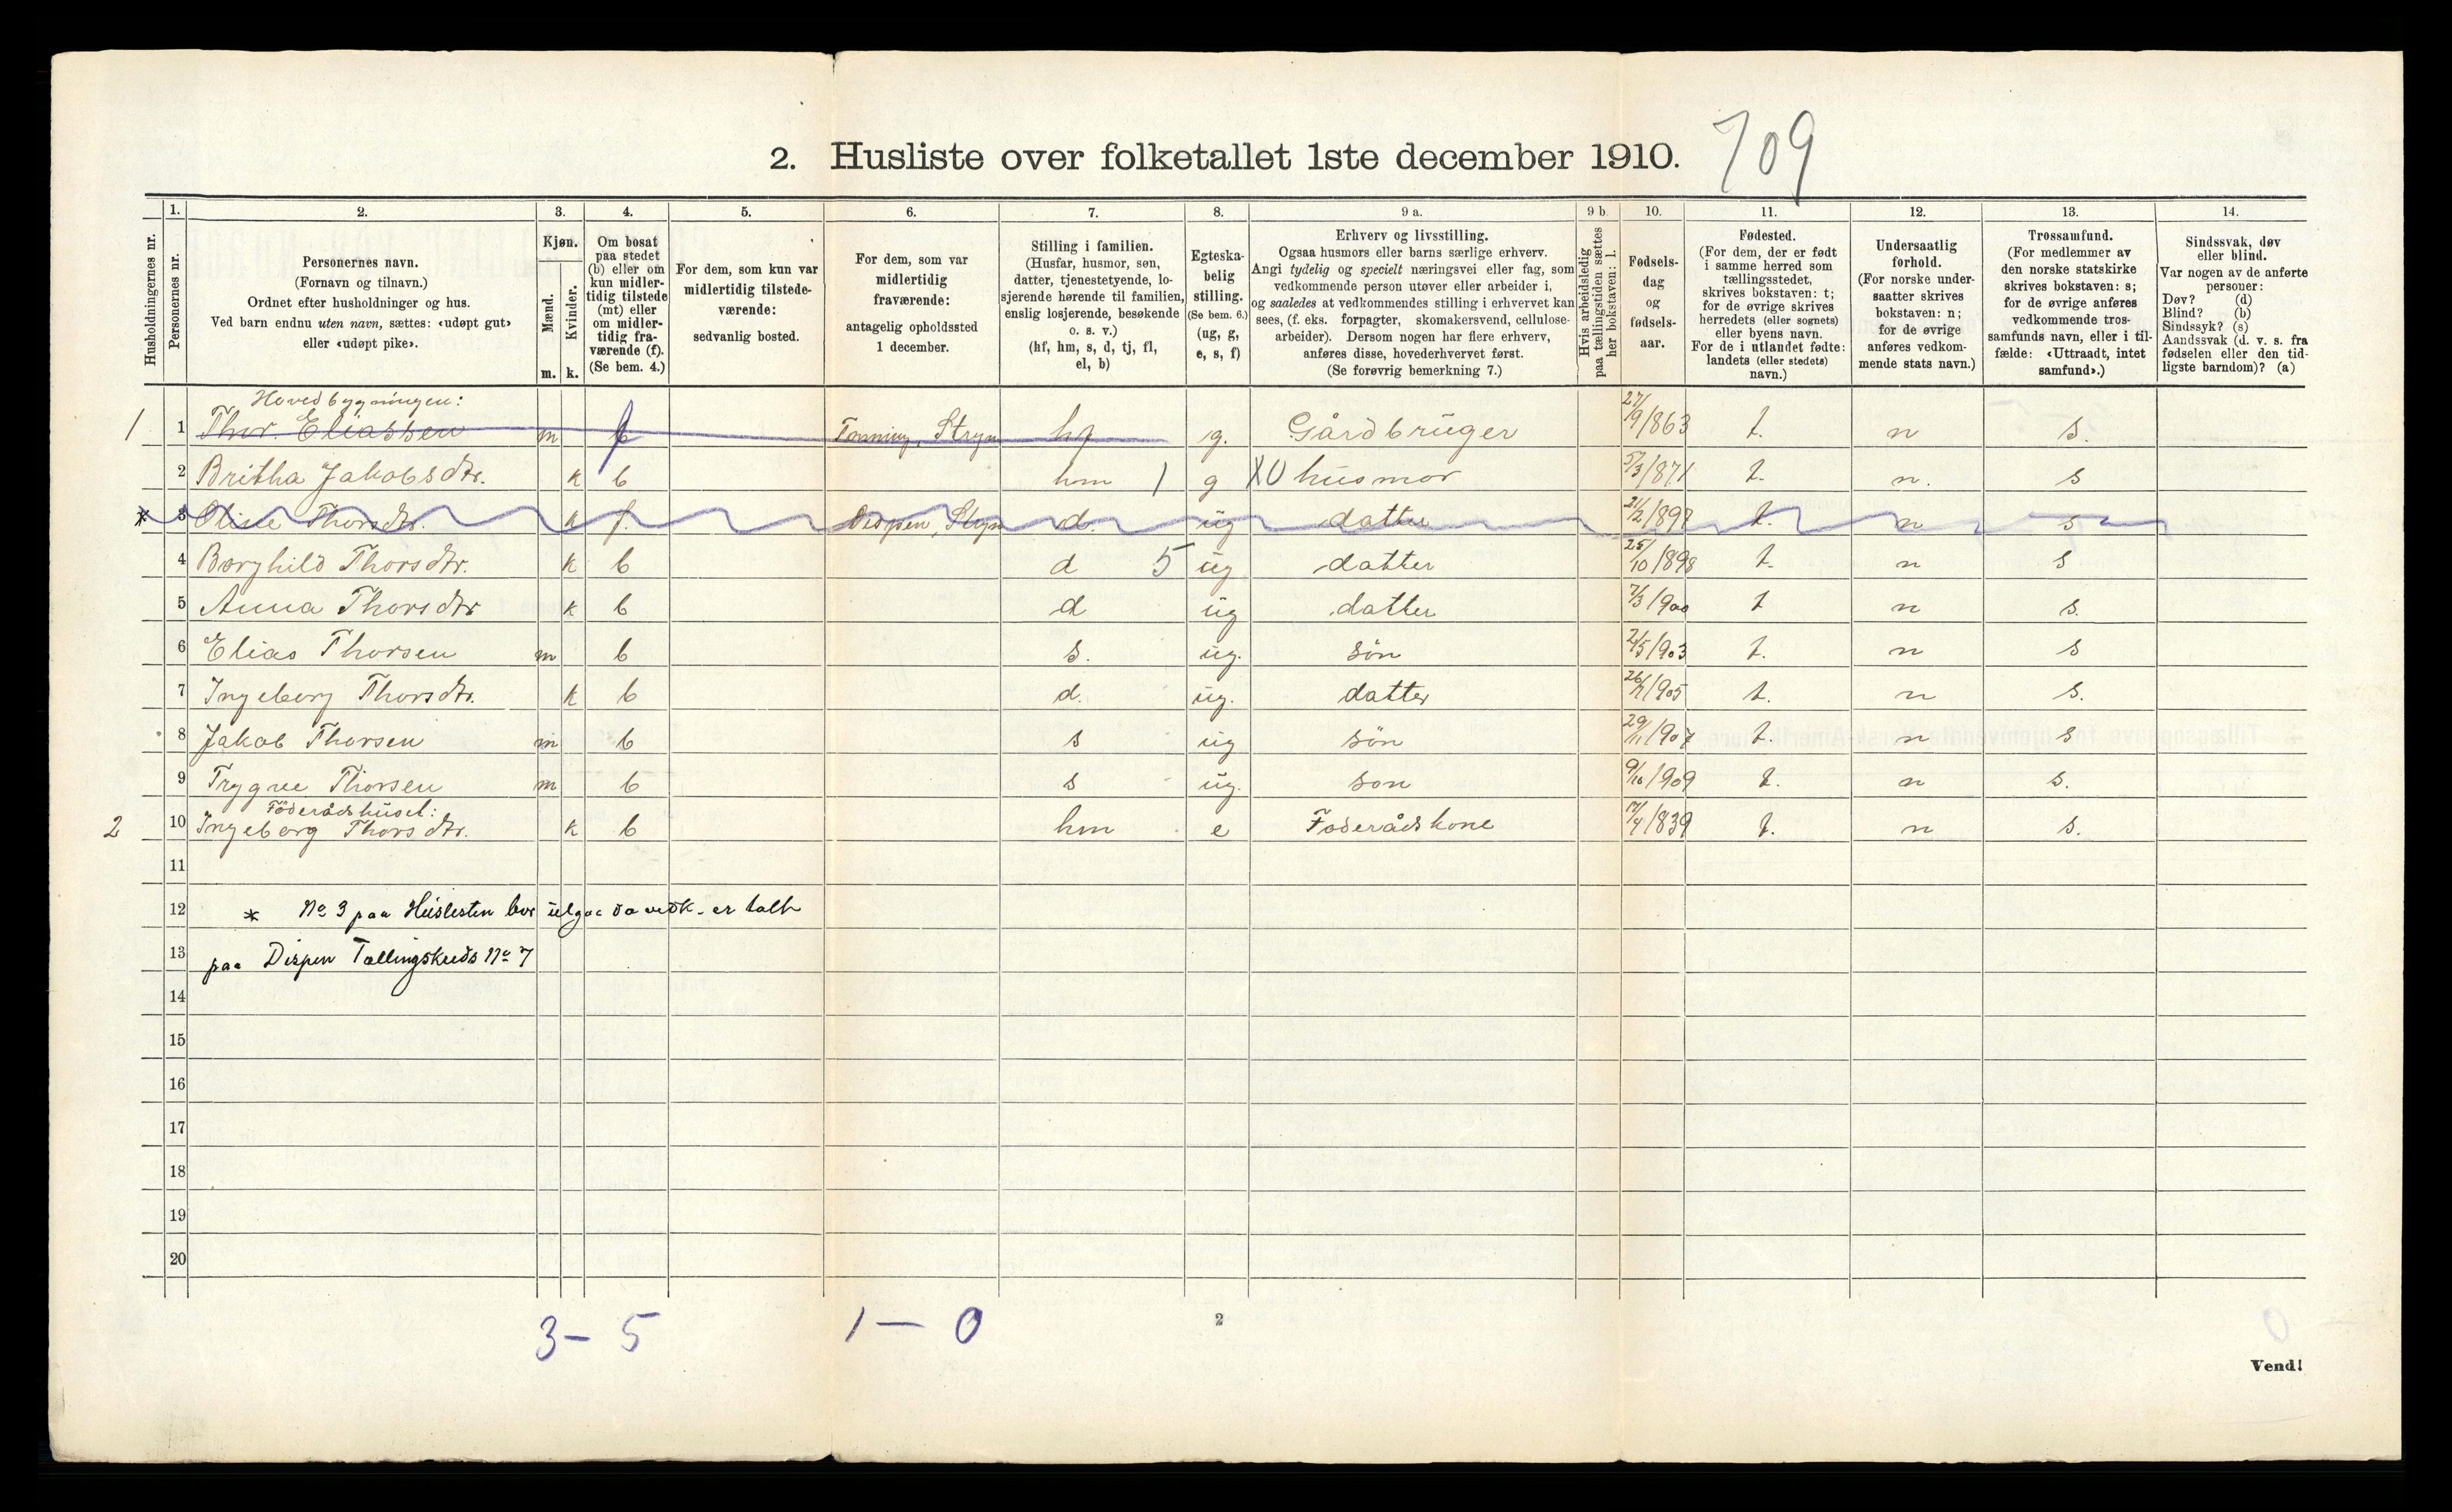 2. Husliste over folketallet 1ste december 1910. 709
Husholdningernes nr.
1. Personernes nr.
2. Personernes navn.
(Fornavn og tilnavn.)
Ordnet efter husholdninger og hus.
Ved barn endnu uten navn, sættes: «udøpt gut»
eller «udøpt pike».
3. Kjøn.
Mænd. m.
Kvinder. k.
4. Om bosat
paa stedet
(b) eller om
kun midler-
tidig tilstede
(mt) eller
om midler-
tidig fra-
værende (f).
(Se bem. 4.)
5. For dem, som kun var
midlertidig tilstede-
værende:
sedvanlig bosted.
6. For dem, som var
midlertidig
fraværende:
antagelig opholdssted
1 december.
7. Stilling i familien.
(Husfar, husmor, søn,
datter, tjenestetyende, lo-
sjerende hørende til familien,
enslig losjerende, besøkende
o. s. v.)
(hf, hm, s, d, tj, fl,
el, b)
8. Egteska-
belig
stilling.
(Se bem. 6.)
(ug, g,
e, s, f)
9 a. Erhverv og livsstilling.
Ogsaa husmors eller barns særlige erhverv.
Angi tydelig og specielt næringsvei eller fag, som
vedkommende person utøver eller arbeider i,
og saaledes at vedkommendes stilling i erhvervet kan
sees, (f. eks. forpagter, skomakersvend, cellulose-
arbeider). Dersom nogen har flere erhverv,
anføres disse, hovederhvervet først.
(Se forøvrig bemerkning 7.)
9 b. Hvis arbeidsledig
paa tællingstiden sættes
her bokstaven: l.
10. Fødsels-
dag
og
fødsels-
aar.
11. Fødested.
(For dem, der er født
i samme herred som
tællingsstedet,
skrives bokstaven: t;
for de øvrige skrives
herredets (eller sognets)
eller byens navn.
For de i utlandet fødte:
landets (eller stedets)
navn.)
12. Undersaatlig
forhold.
(For norske under-
saatter skrives
bokstaven: n;
for de øvrige
anføres vedkom-
mende stats navn.)
13. Trossamfund.
(For medlemmer av
den norske statskirke
skrives bokstaven: s;
for de øvrige anføres
vedkommende tros-
samfunds navn, eller i til-
fælde: «Uttraadt, intet
samfund».)
14. Sindssvak, døv
eller blind.
Var nogen av de anførte
personer:
Døv? (d)
Blind? (b)
Sindssyk? (s)
Aandssvak (d. v. s. fra
fødselen eller den tid-
ligste barndom)? (a)
Hovedbygningen:
1 1 Thor. Eliassen m f Tonning, Stryn hf g. Gårdbrüger 27/9/863 t. n s.
2 Britha Jakobsdtr. k b hm 1 g X0 hüsmor 5/3/871 t. n. s
* 3 Oline Thorsdtr. k f. Dispen, Stryn d. üg datter 21/2/897 t. n s
4 Borghild Thorsdtr. k b d 5 üg datter 25/10/898 t. n s
5 Anna Thorsdtr k b d üg datter 7/3/900 t n s.
6 Elias Thorsen m b s. üg. søn 2/5/903 t. n s
7 Ingeborg Thorsdtr. k b d. üg. datter /905 t. n s.
8 Jakob Thorsen m b s üg søn 29/11/907 t. n s
9 Trygve Thorsen m b s üg. son 9/10/909 t. n s.
Föderådshüset:
2 10 Ingeborg Thorsdtr. k b hm e Foderådskone /4/839 t. n s.
11
12 * No 3 paa Hüslisten bør ütgaa da vedk. er talt
13 paa Dispen Tællingskreds No 7
14
15
16
17
18
19
20
3 – 5 1 – 0 2
0
Vend!